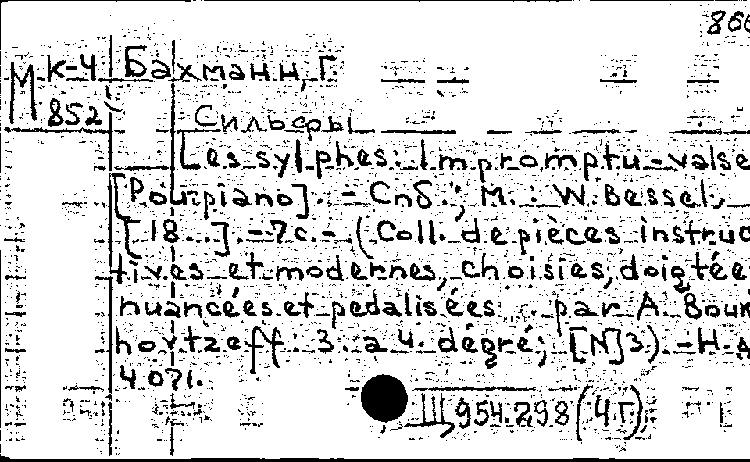 866
М К-4 Бахманн, Г.
852
Сильфы
Les sylphes: Impromptu-valse
[Pour piano]. - Спб.; М.: W. Bessel,
[18..]. - 7 с. - (Coll. de pièces instruc
tives et modernes, choisies, doigtée
nuancées et pedalisées par A. Bouk
hovtzeff: 3. a 4. degré; [N]3). - Н.д.
4071.
Ш 954.298 (4 Г).